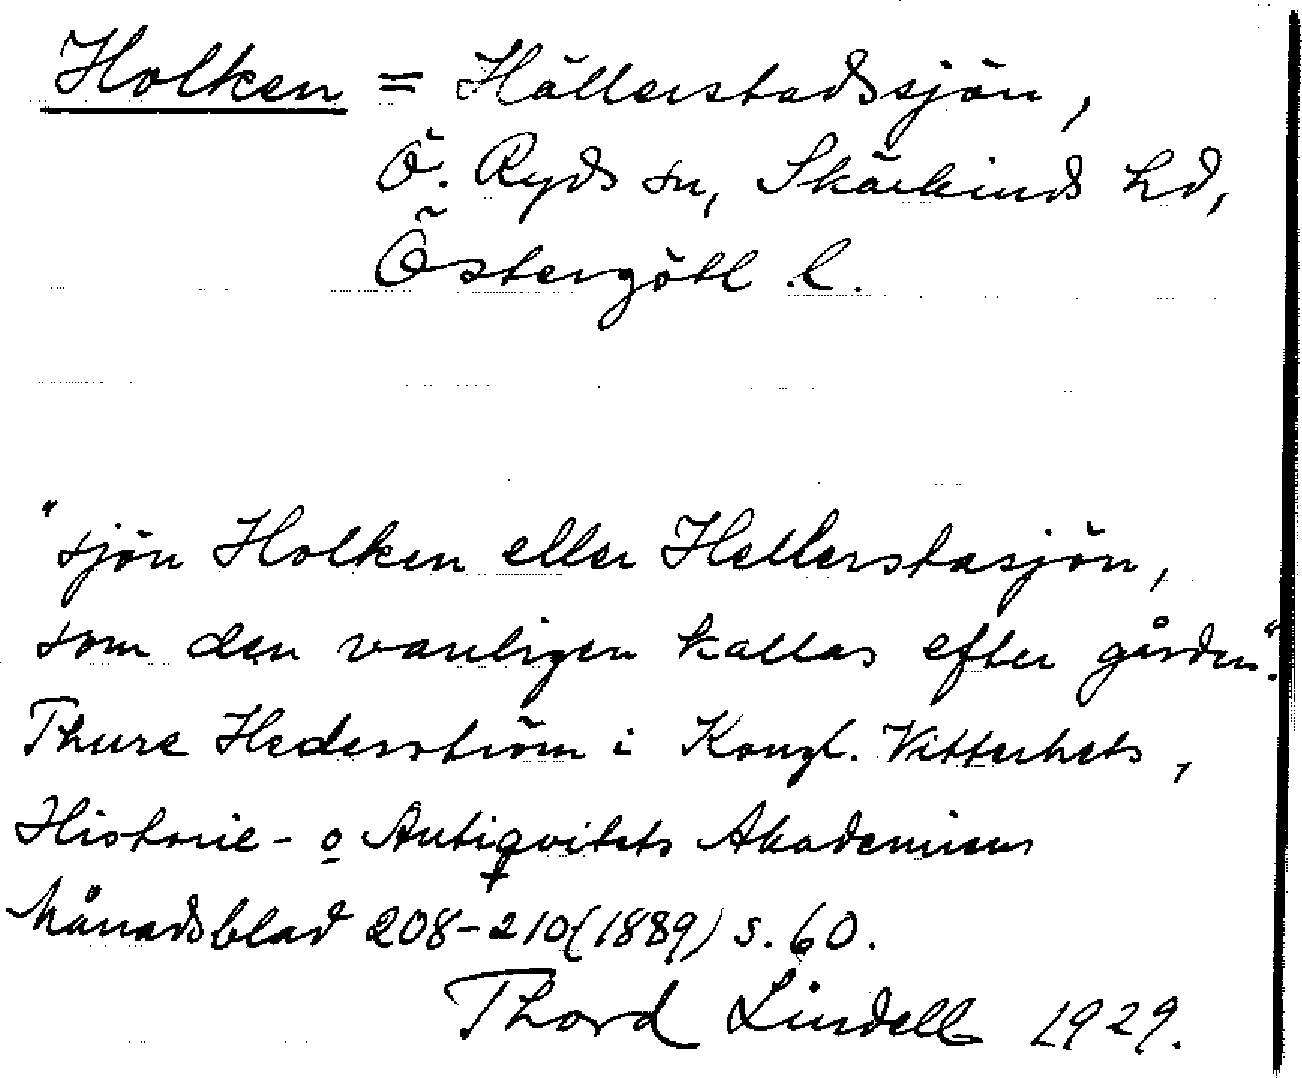 Holken = Hällerstadssjön,
Ö. Ryds sn, Skärkinds hd,
Östergötl. l.
"sjön Holken eller Hellerstasjön,
som den vanligen kallas efter gården".
Thure Hederström i Kongl. Vitterhets,
Historie- o Antiqvitets Akademiens
Månadsblad 208-210 (1889) s. 60.
Thord Lindell 1929.